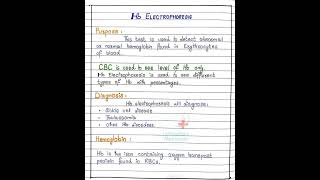 Hb ELECTROPHORESIS
Purpose :
This test is used to detect abnormal
or normal hemoglobin found in Erythrocytes
of blood.
CBC is used to see level of Hb only.
Hb Electrophoresis is used to see different
types of Hb with percentages.
Diagnosis :
Hb electrophoresis will diagnose:
- Sickle cell disease
- Thalassemia
- Other Hb disorders.
Hemoglobin :
Hb is the iron containing oxygen transport
protein found in RBCs.